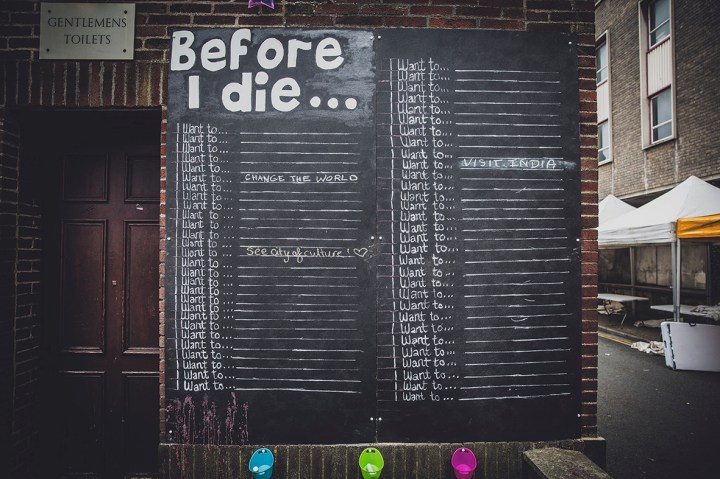 GENTLEMENS
TOILETS
Before
I die...
I Want to...
I Want to...
I Want to...
I Want to...
I Want to...
I Want to... CHANGE THE WORLD
I Want to...
I Want to...
I Want to...
I Want to...
I Want to...
I Want to...
I Want to...
I Want to... See city of culture!
I Want to...
I Want to...
I Want to...
I Want to...
I Want to...
I Want to...
I Want to...
I Want to...
I Want to...
I Want to...
I Want to...
I Want to...
I Want to...
I Want to...
I Want to...
I Want to...
I Want to...
I Want to...
I Want to...
I Want to...
I Want to...
I Want to...
I Want to...
I Want to... VISIT INDIA
I Want to...
I Want to...
I Want to...
I Want to...
I Want to...
I Want to...
I Want to...
I Want to...
I Want to...
I Want to...
I Want to...
I Want to...
I Want to...
I Want to...
I Want to...
I Want to...
I Want to...
I Want to...
I Want to...
I Want to...
I Want to...